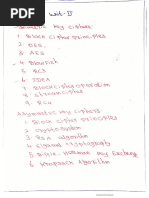 Unit-II
Symmetric key ciphers
1. Block cipher principles
2. DES
3. AES
4. Blowfish
5. RC5
6. IDEA
7. Block cipher operation
8. Stream ciphers
9. RC4
Asymmetric key ciphers
1. Block cipher principles
2. crypto system
3. RSA algorithm
4. Elgamal cryptography
5. Diffie-Hellman key Exchange
6. knapsack Algorithm